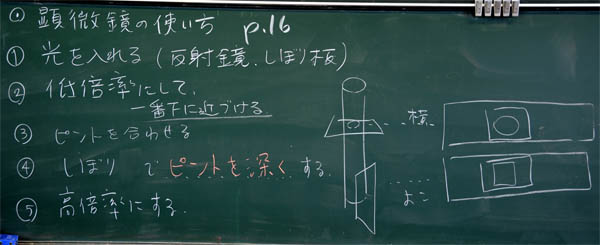 ⊙ 顕微鏡の使い方 p.16
① 光を入れる (反射鏡、しぼり板)
② 低倍率にして、
一番下に近づける
③ ピントを合わせる
④ しぼりでピントを深くする。
⑤ 高倍率にする。
横
よこ